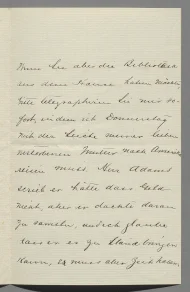 Wenn Sie aber die Bibliothek
aus dem Hause haben müssen,
bitte telegraphieren Sie mir so-
fort, indem ich Donnerstag
mit der Leiche meiner lieben
Mutter nach Amerika
reisen muss. Herr Adams
schrieb er hätte das Geld
nicht, aber er dächte daran
zu sammeln, und ich glaube
dass er es zu Stand bringen
kann, Es muss aber Zeit haben